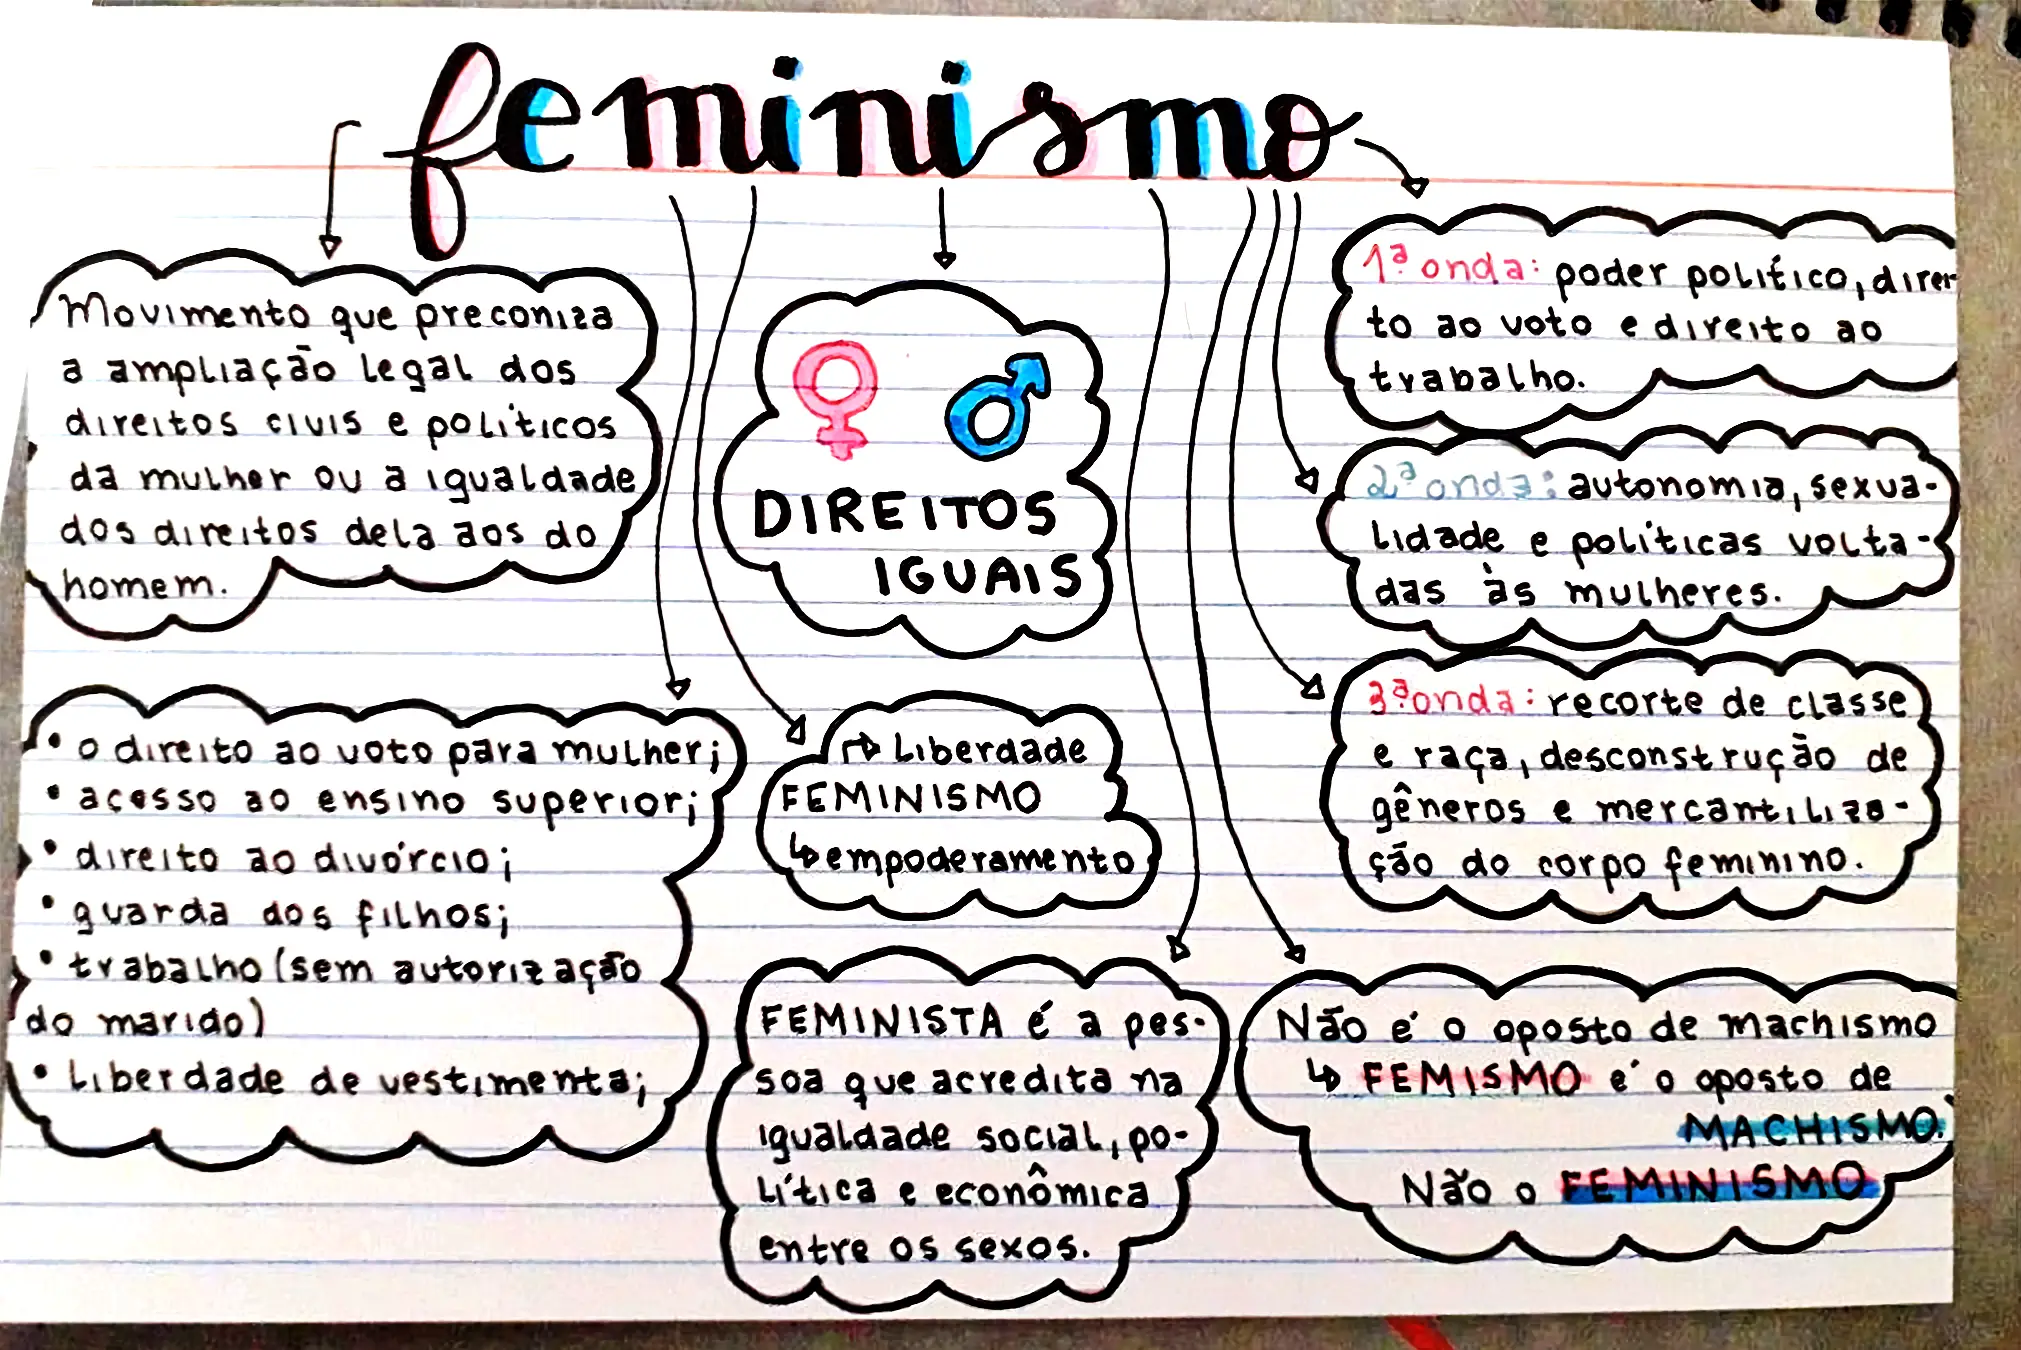 feminismo
Movimento que preconiza
a ampliação legal dos
direitos civis e políticos
da mulher ou a igualdade
dos direitos dela aos do
homem.
DIREITOS
IGUAIS
1ª onda: poder político, direi-
to ao voto e direito ao
trabalho.
2ª onda: autonomia, sexua-
lidade e políticas volta-
das às mulheres.
3ª onda: recorte de classe
e raça, desconstrução de
gêneros e mercantiliza-
ção do corpo feminino.
• o direito ao voto para mulher;
• acesso ao ensino superior;
• direito ao divórcio;
• guarda dos filhos;
• trabalho (sem autorização
do marido)
• Liberdade de vestimenta;
↱ Liberdade
FEMINISMO
↳ empoderamento
FEMINISTA é a pes-
soa que acredita na
igualdade social, po-
lítica e econômica
entre os sexos.
Não é o oposto de machismo
↳ FEMISMO é o oposto de
MACHISMO.
Não o FEMINISMO